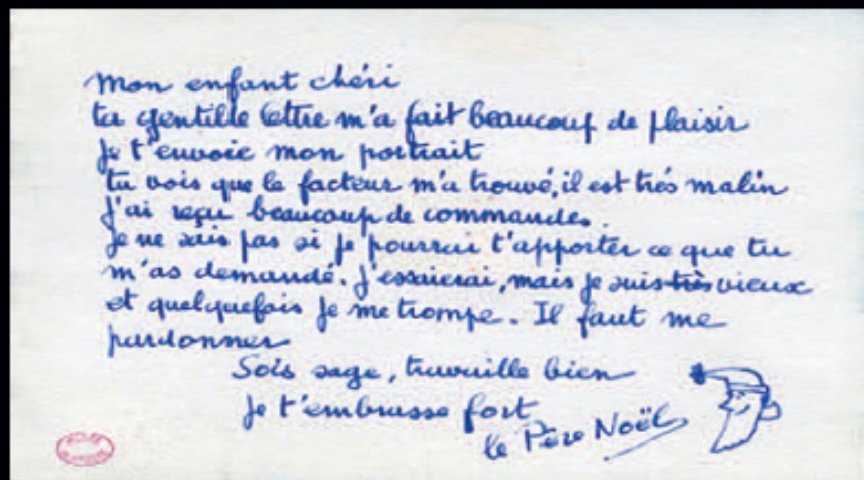 Mon enfant chéri
ta gentille lettre m'a fait beaucoup de plaisir
Je t'envoie mon portrait
tu vois que le facteur m'a trouvé, il est très malin
J'ai reçu beaucoup de commandes.
Je ne sais pas si je pourrai t'apporter ce que tu
m'as demandé. J'essaierai, mais je suis très vieux
et quelquefois je me trompe. Il faut me
pardonner
Sois sage, travaille bien
Je t'embrasse fort
le Père Noël